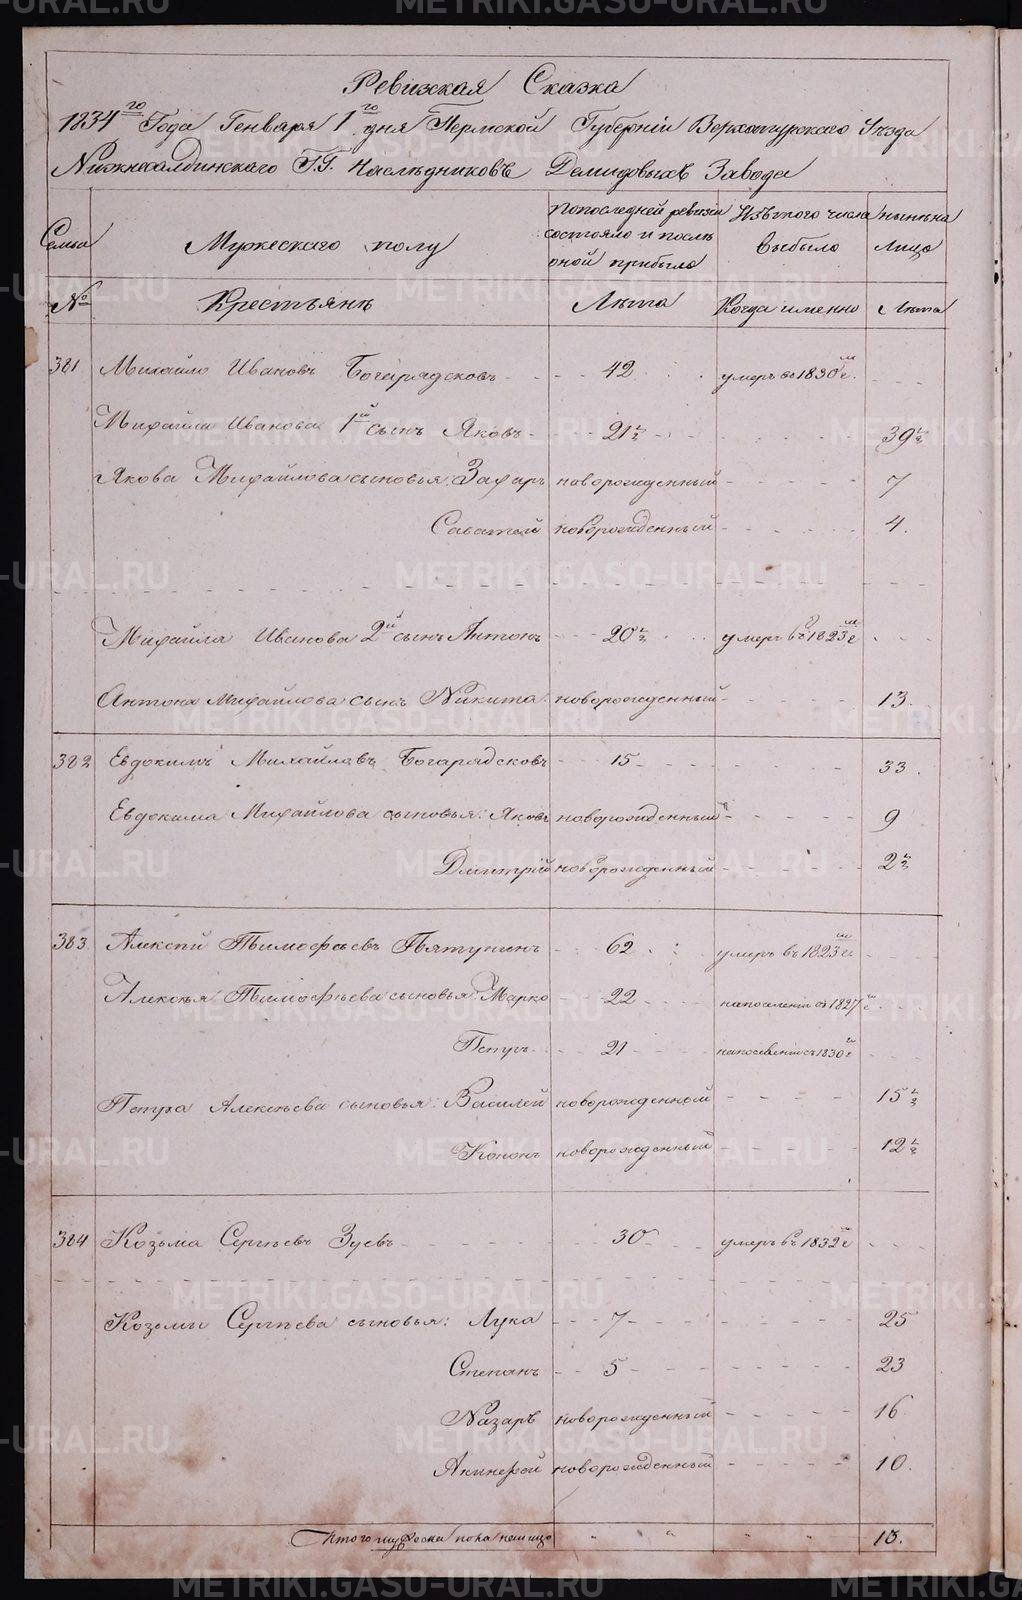 Ревизская Сказка
1834го Года Генваря 1го дня Пермской Губернiи Верхотурскаго Уѣзда
Нижнесалдинскаго Г.Г. Наслѣдниковъ Демидовыхъ Завода
Семьи Мужескаго полу Попоследней ревизiи состояло и послѣ оной прибыло Изъ того числа выбыло нынѣ на лицо
№ Крестьянѣ Лѣта Когда именно Лѣта
381 Михайло Ивановъ Богарядсковъ 42 умеръ въ 1830м г.
Михайла Иванова 1й сынъ Яковъ 21 ½ 39 ½
Якова Михайлова сыновья: Захаръ новорожденный 7
Саватей новорожденный 4.
Михайла Иванова 2й сынъ Антонъ 20 ½ умеръ въ 1823м г
Антона Михайлова сынъ Никита новорожденный 13.
382 Евдокимъ Михайлавъ Богарядсковъ 15 33.
Евдокима Михайлова сыновья: Яковъ новорожденный 9
Дмитрiй новорожденный 2 ½
383. Алексѣй Тимофѣевъ Пятунинъ 62 умеръ въ 1823м г.
Алексѣя Тимофѣева сыновья: Марко 22 напоселенiи съ 1827м г
Петръ 21 напоселенiи съ 1830м г
Петра Алексѣева сыновья: Василей новорожденной 15 ½
Кононъ новорожденный 12 ½
384 Козьма Сергѣевъ Зуевъ 30 умеръ въ 1832м г
Козьмы Сергѣева сыновья: Лука 7 25
Степанъ 5 23
Назаръ новорожденный 16
Акинфей новорожденный 10.
Итого мужеска пола на лицо 13.
METRIKI.GASO-URAL.RU